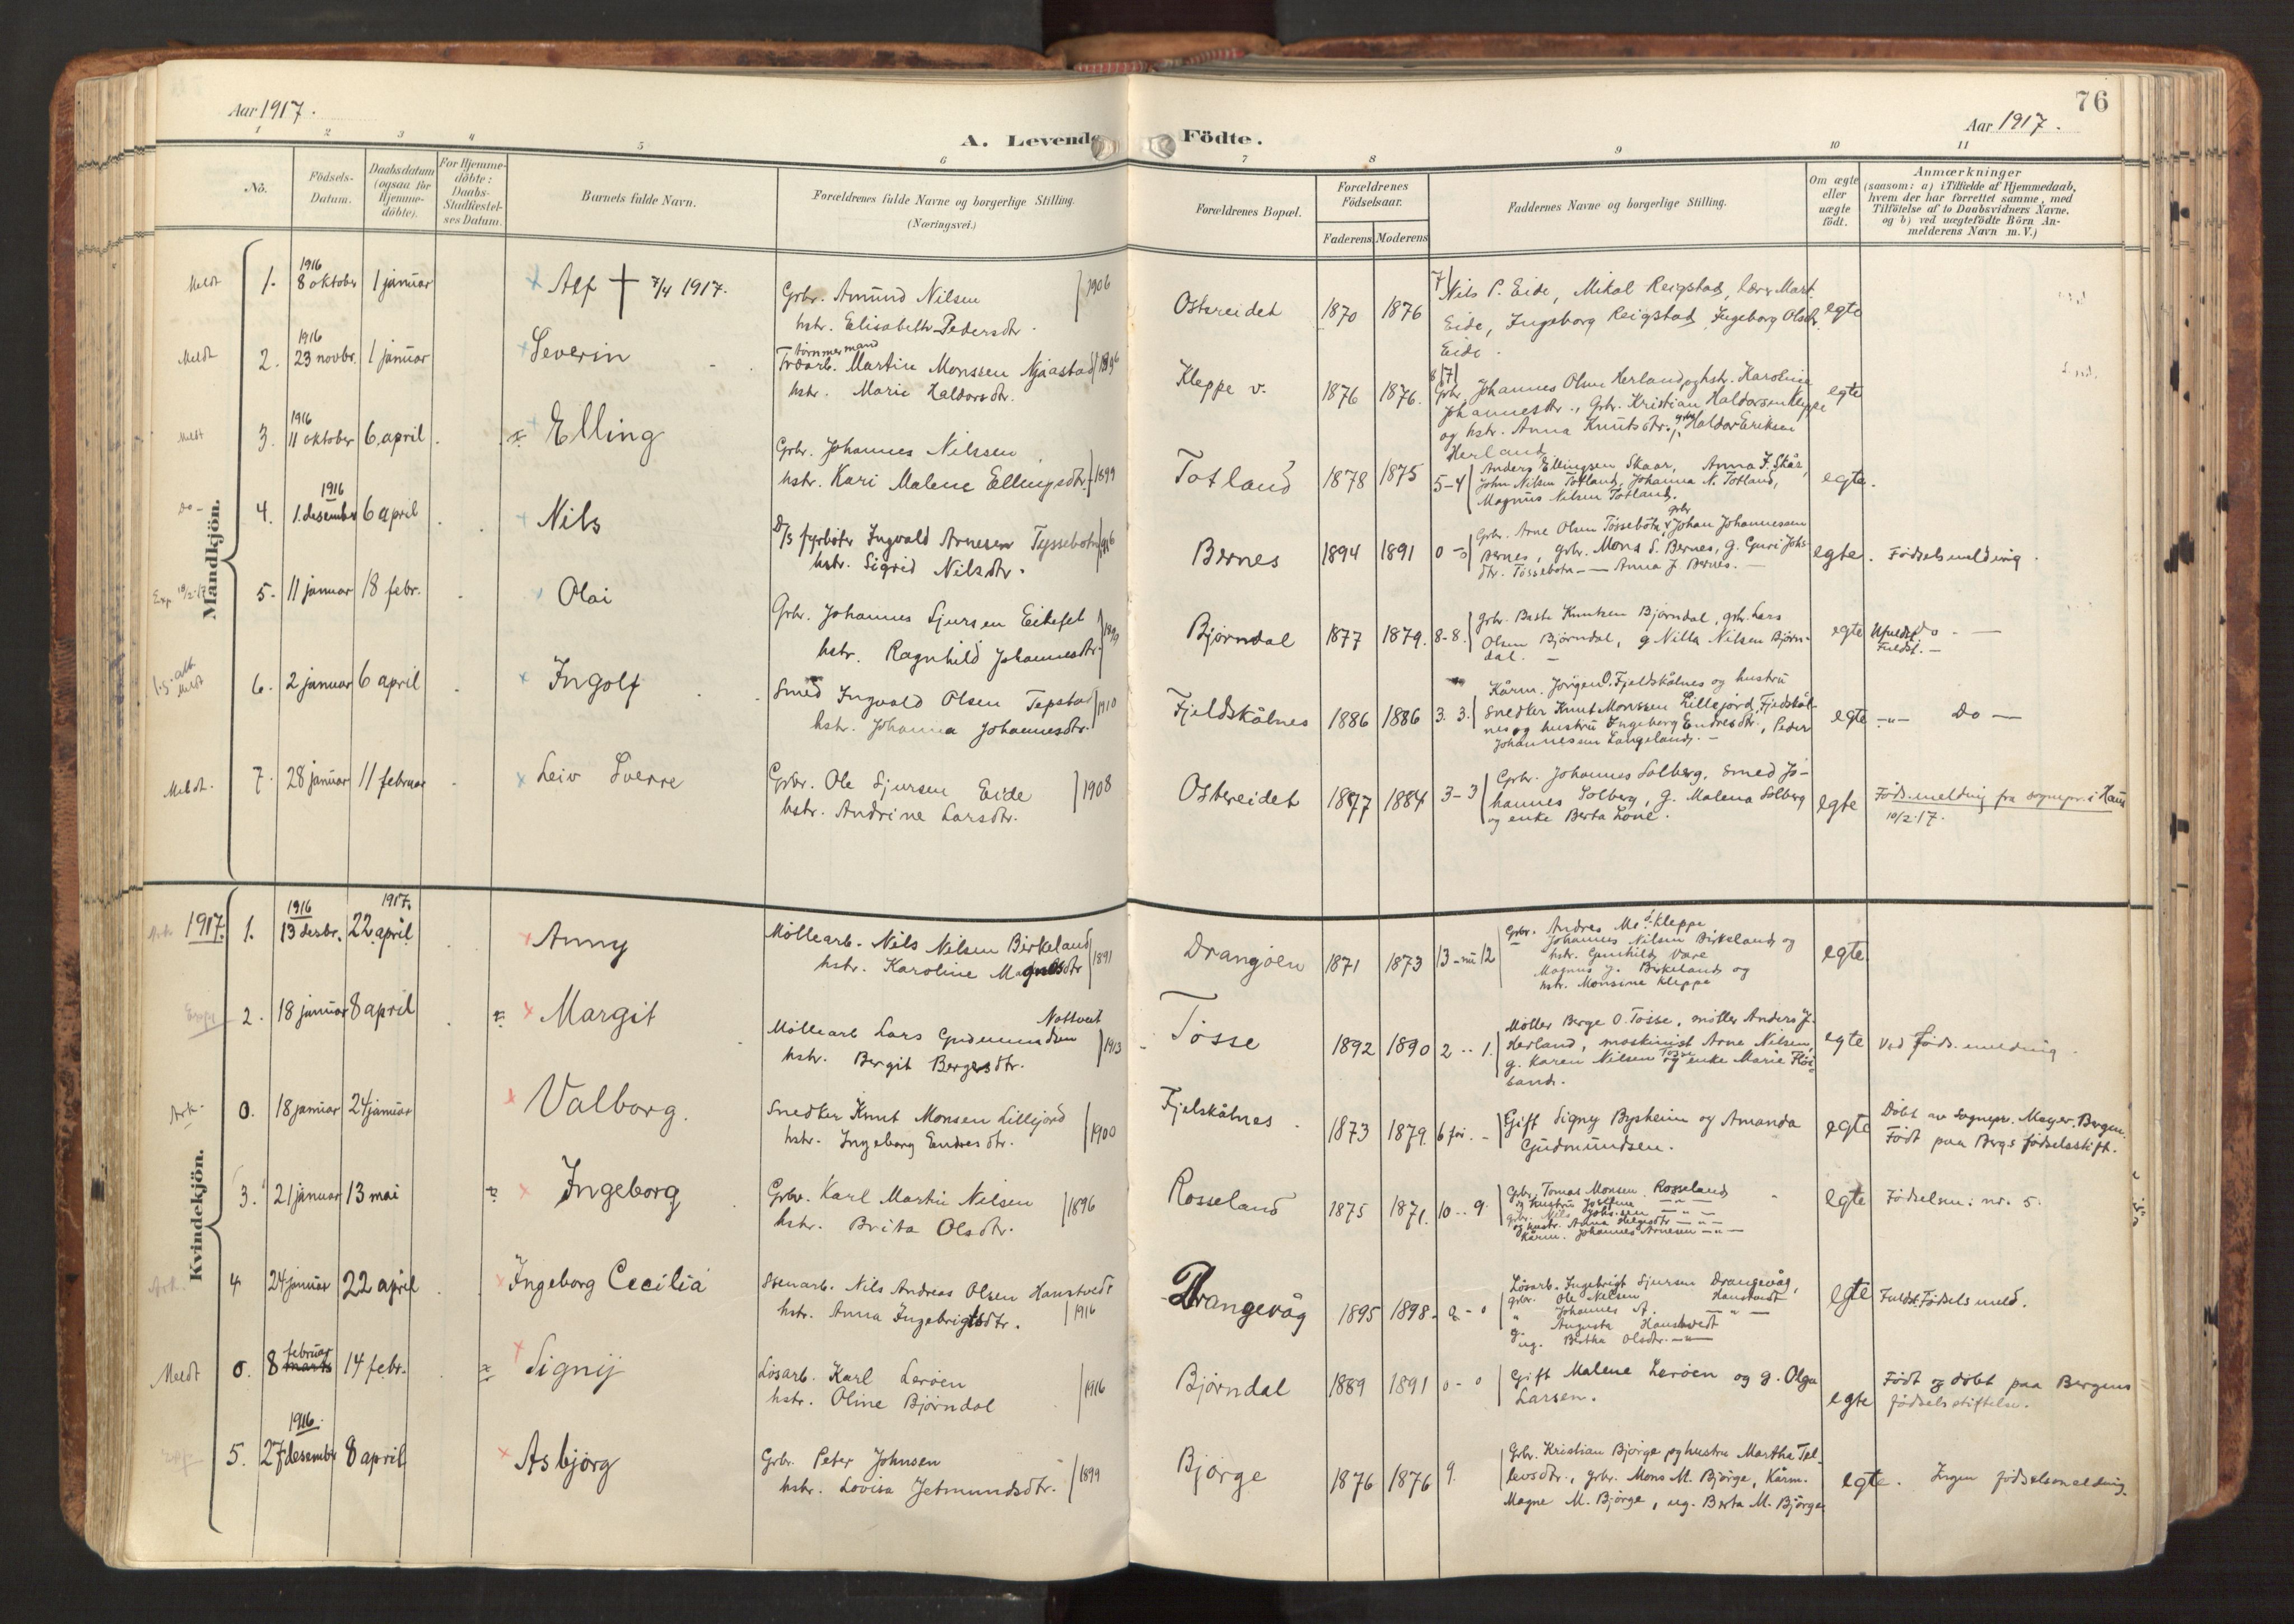 76
Aar 1917.
Aar 1917.
A. Levende Födte.
1 2 3 4 5 6 7 8 9 10 11
No.
Födsels-
Datum.
Daabsdatum
(ogsaa for
Hjemme-
döbte).
For Hjemme-
döbte:
Daabs-
Stadfæstel-
ses Datum.
Barnets fulde Navn.
Forældrenes fulde Navne og borgerlige Stilling.
(Næringsvei.)
Forældrenes Bopæl.
Forældrenes
Födselsaar.
Faderens Moderens
Faddernes Navne og borgerlige Stilling.
Om ægte
eller
uægte
födt.
Anmærkninger
(saasom: a) i Tilfælde af Hjemmedaab,
hvem der har forrettet samme, med
Tilföielse af to Daabsvidners Navne.
og b) ved uægtefödte Börn An-
melderens Navn m. V.)
Mandkjön.
Meldt 1. 1916 8 oktober 1 januar
Alf † 7/4 1917.
Grbr. Amund Nilsen
hstr. Elisabeth Pedersdtr. 1906
Ostereidet 1870 1876
Nils P. Eide, Mikal Reigstad, Mart.
Eide, Ingeborg Reigstad, Ingeborg Olsdtr.
Eide.
egte
Meldt 2. 1916 23 novbr. 1 januar
Severin
tömmermand
Martin Monssen Njaastad
hstr. Marie Haldorsdtr.
Kleppe v. 1876 1876.
Grbr. Johannes Olsen Herland og hstr. Karoline
Johannesdtr., Grbr. Kristian Haldorsen Kleppe
og hstr. Anna Knutsdtr., Haldor Eriksen
Herland
egte
Meldt 3. 1916 11 oktober 6 april
Elling
Grbr. Johannes Nilssen
hstr. Kari Malene Ellingsdtr. 1899
Totland 1878 1875 5-4
Anders Ellingsen Skaar, Anna J. Skår,
John Nilsen Totland, Johanna N. Totland,
Magnus Nilsen Totland.
egte.
Do - 4. 1916 1. desember 6 april
Nils
D/s fyrböter Ingvald Arnesen Tyssebotn
hstr. Sigrid Nilsdtr. 1916
Bernes 1894 1891 0 - 0
Grbr. Arne Olsen Tössebotn, grbr Johan Johannessen
Bernes, grbr. Mons S. Bernes, g. Guri Johs-
dtr. Tössebotn - Anna J. Bernes. -
egte. Födselsmelding.
Exp. 18/2-17 5. 11 januar 18 febr.
Olai
Grbr. Johannes Sjursen Eikefet
hstr. Ragnhild Johannesdtr. 1899
Björndal 1877 1879. 8-8.
Grbr. Baste Knutsen Björndal, grbr. Lars
Olsen Björndal, g Nilla Nilsen Björn-
dal. -
egte do. -
Fuldst. -
Meldt 6. 2 januar 6 april
Ingolf
Smed Ingvald Olsen Tepstad
hstr. Johanna Johannesdtr. 1910
Fjeldskålnes 1886 1886 3. 3.
Kårm. Jörgen O. Fjeldskålnes og hustru
Snedker Knut Monssen Lillejord, Fjedskål-
nes og hustru Ingeborg Endresdtr., Peder
Johannessen Langeland. -
egte -"- Do -
Meldt. 7. 28 januar 11 februar
Leiv Sverre
Grbr. Ole Sjursen Eide
hstr. Andrine Larsdtr. 1908
Ostereidet 1877 1884 3-3
Grbr. Johannes Solberg, Smed Jo-
hannes Solberg, g. Malena Solberg
og enke Berta Lone.
egte Föds.melding fra sognepr. i Haus
10/2-17.
Kvindekjön.
1917. 1. 1916 13 desbr. 1917. 22 april
Anny
Möllearb. Nils Nilsen Birkeland
hstr. Karoline Magnusdtr 1891
Drangöen 1871 1873 13 - nu 12
Grbr. Andres Kleppe
Johannes Nilsen Birkeland og
hstr. Gunhild Vare
Magnus J. Birkeland og
hstr. Monsine Kleppe
egte.
2. 18 januar 8 april
Margit
Möllearb Lars Gudmundsen Nottveit
hstr. Bergit Bergesdtr. 1913
Tösse 1892 1890 2 .. 1.
Möller Berge O. Tösse, möller Anders J.
Herland, maskinist Arne Nilsen,
g. Karen Nilsen Tösse og enke Marie
land.
egte Ved föds.melding.
Ark. 0. 18 januar 24 januar
Valborg.
Snedker Knut Monsen Lillejord
hstr. Ingeborg Endresdtr. 1900
Fjelskålnes. 1873 1879. 6 för. -
Gift Signy Bysheim og Amanda
Gudmundsen.
egte Döbt av Sognepr. Meyer. Bergen.
Födt paa Brgs födselsstift.
3. 21 januar 13 mai
Ingeborg
Grbr. Karl Martin Nilsen
hstr. Brita Olsdtr. 1896
Rosseland 1875 1871. 10 .. 9.
Grbr. Tomas Monsen Rosseland
og hustru Josefine -"-
grbr. Nils Johs.sen -"-
og hustr. Anna Helgesdtr -"-
Kårm. Johannes Arnesen -"-
egte Födselsm. nr. 5.
Ark. 4 24 januar 22 april
Ingeborg Cecilia
Stenarb. Nils Andreas Olsen Hanstvedt
hstr. Anna Ingebrigtsdtr. 1916
Drangevåg 1895 1898. 0 - 0
Lösarb. Ingebrigt Sjursen Drangevåg,
grbr. Ole Nelsen Hanstvedt
" Johannes A. -"-
g. Augusta Hanstvedt
ug. Bertha Olsdtr. -"-
egte Fuldst. Födsels meld.
Meldt 0. 8 februar 14 febr.
Signy
Lösarb. Karl Leröen
hstr. Oline Björndal 1916
Björndal 1889 1891 0 - 0
Gift Malene Leröen og g. Olga
Larsen.
egte Födt og döbt paa Bergens
födselsstiftelse.
5. 1916. 27 desember 8 april
Asbjörg
Grbr. Peter Johnsen
hstr. Lovisa Jetmundsdtr. 1899
Bjørge 1876 1876 9.
Grbr. Kristian Bjørge og hustru Martha Tel-
levsdtr., grbr. Mons M. Bjørge, Kårm.
Magne M. Bjørge, ug. Berta M. Bjørge
egte. Ingen födselsmelding.